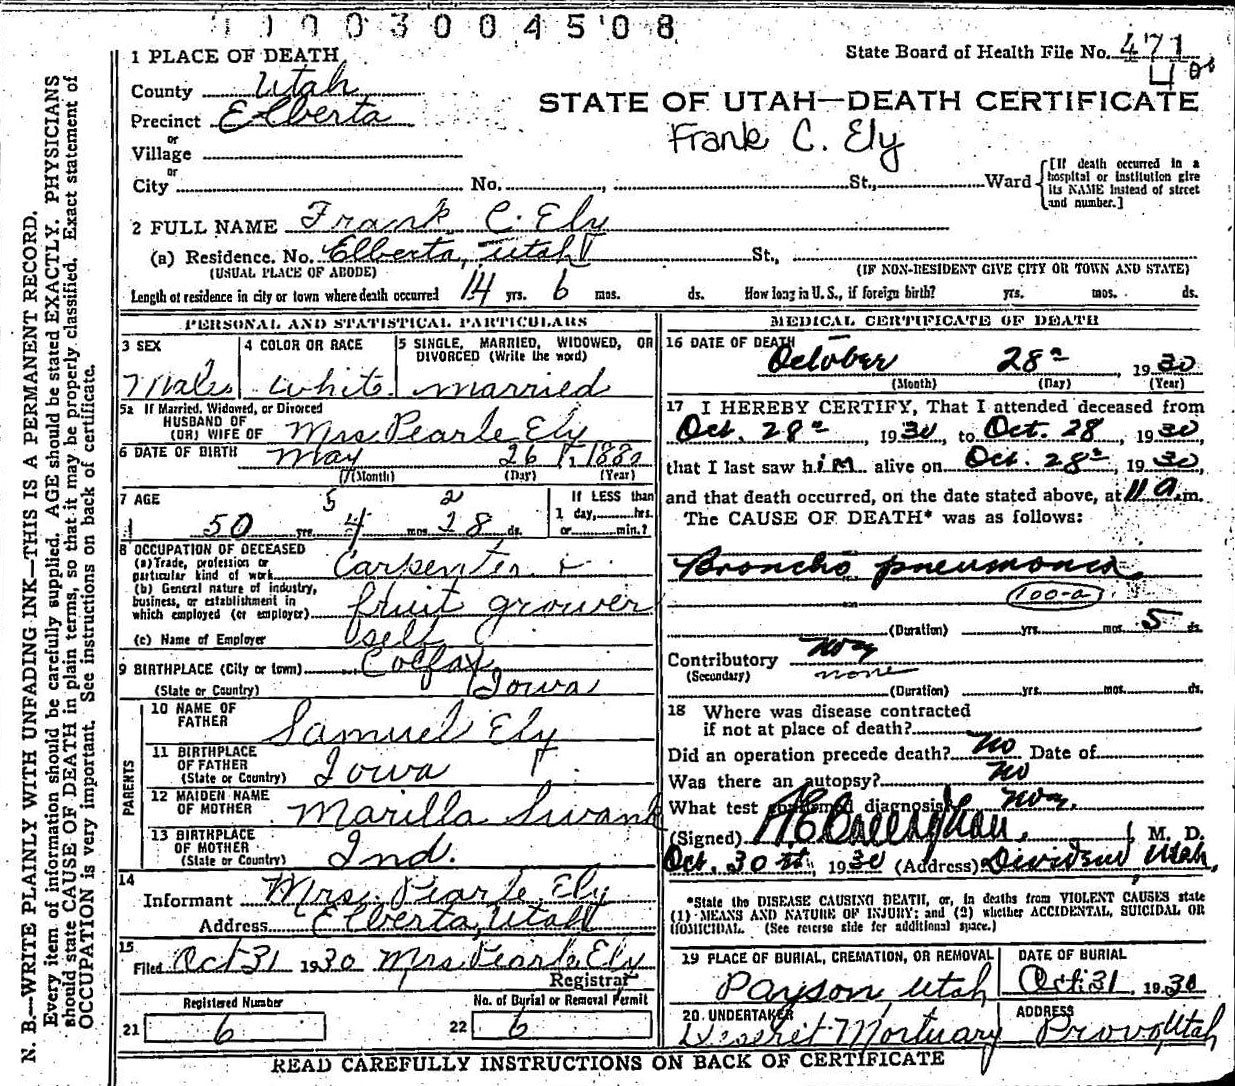 11003004508
State Board of Health File No. 471
4
1 PLACE OF DEATH
County Utah
STATE OF UTAH—DEATH CERTIFICATE
Precinct Elberta
Frank C. Ely
or
Village
or
City No. , St., Ward
[If death occurred in a hospital or institution give its NAME instead of street and number.]
2 FULL NAME Frank C. Ely
(a) Residence. No. Elberta, Utah St.,
(USUAL PLACE OF ABODE) (IF NON-RESIDENT GIVE CITY OR TOWN AND STATE)
Length of residence in city or town where death occurred 14 yrs. 6 mos. ds. How long in U. S., if foreign birth? yrs. mos. ds.
PERSONAL AND STATISTICAL PARTICULARS
3 SEX
Male
4 COLOR OR RACE
white
5 SINGLE, MARRIED, WIDOWED, OR
DIVORCED (Write the word)
married
5a If Married, Widowed, or Divorced
HUSBAND OF
(OR) WIFE OF Mrs Pearle Ely
6 DATE OF BIRTH May 26 1880
(Month) (Day) (Year)
7 AGE 5 2
50 yrs. 4 mos. 28 ds.
If LESS than
1 day, hrs.
or min.?
8 OCCUPATION OF DECEASED
(a) Trade, profession or
particular kind of work Carpenter +
(b) General nature of industry,
business, or establishment in
which employed (or employer) fruit grower
(c) Name of Employer self
9 BIRTHPLACE (City or town) Colfax,
(State or Country) Iowa
PARENTS
10 NAME OF
FATHER Samuel Ely
11 BIRTHPLACE
OF FATHER
(State or Country) Iowa
12 MAIDEN NAME
OF MOTHER Marilla Swank
13 BIRTHPLACE
OF MOTHER
(State or Country) Ind.
14
Informant Mrs. Pearle Ely
Address Elberta, Utah
15
Filed Oct 31 1930 Mrs Pearle Ely
Registrar
Registered Number
21 6
No. of Burial or Removal Permit
22 6
MEDICAL CERTIFICATE OF DEATH
16 DATE OF DEATH
October 28 , 1930
(Month) (Day) (Year)
17 I HEREBY CERTIFY, That I attended deceased from
Oct. 28 , 1930, to Oct. 28 , 1930
that I last saw him alive on Oct. 28 , 1930,
and that death occurred, on the date stated above, at 11 a.m.
The CAUSE OF DEATH* was as follows:
Broncho pneumonia
100-a
(Duration) yrs. mos. 5 ds.
Contributory
(Secondary) none
(Duration) yrs. mos. ds.
18 Where was disease contracted
if not at place of death?
Did an operation precede death? no Date of
Was there an autopsy? no
What test confirmed diagnosis?
(Signed) , M. D.
Oct. 30 , 1930 (Address) Dividend, Utah,
*State the DISEASE CAUSING DEATH, or, in deaths from VIOLENT CAUSES state
(1) MEANS AND NATURE OF INJURY; and (2) whether ACCIDENTAL, SUICIDAL OR
HOMICIDAL. (See reverse side for additional space.)
19 PLACE OF BURIAL, CREMATION, OR REMOVAL
Payson, Utah
DATE OF BURIAL
Oct. 31 , 1930
20 UNDERTAKER
Deseret Mortuary
ADDRESS
Provo, Utah
READ CAREFULLY INSTRUCTIONS ON BACK OF CERTIFICATE
N. B.—WRITE PLAINLY WITH UNFADING INK—THIS IS A PERMANENT RECORD.
Every item of information should be carefully supplied. AGE should be stated EXACTLY. PHYSICIANS
should state CAUSE OF DEATH in plain terms, so that it may be properly classified. Exact statement of
OCCUPATION is very important. See instructions on back of certificate.